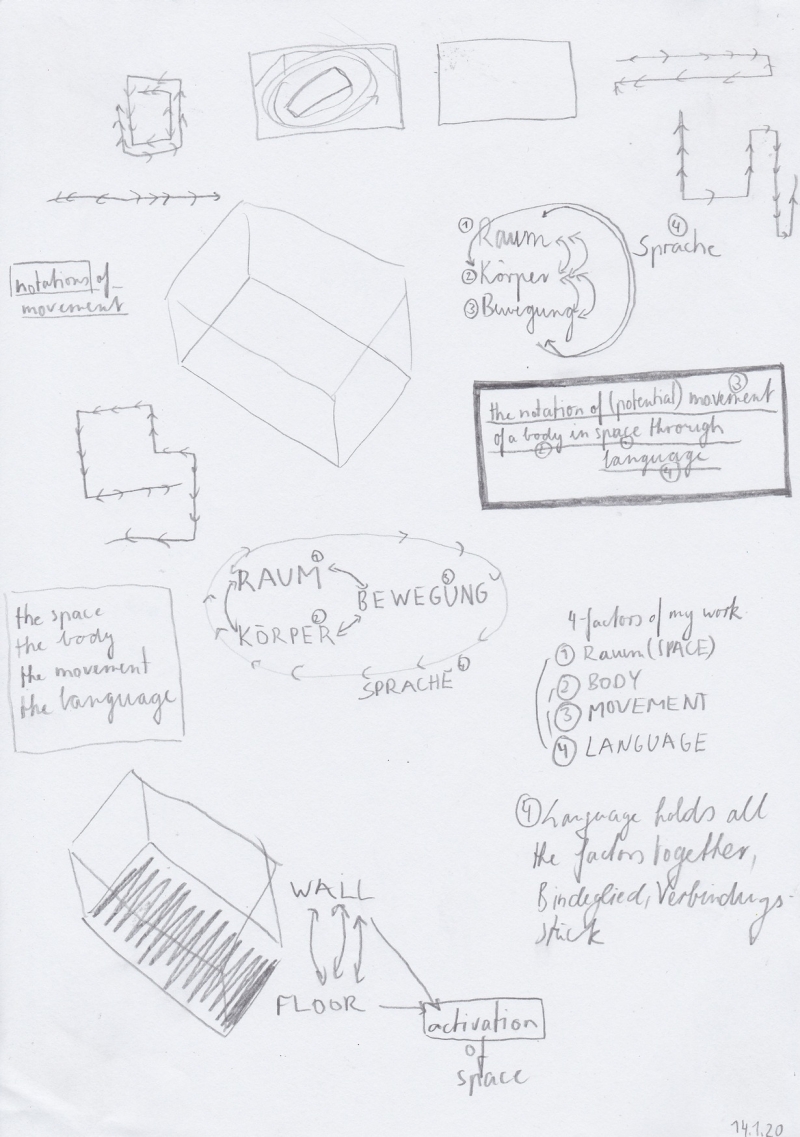 ① Raum
② Körper
③ Bewegung
④
Sprache
notations of
movement
③
the notation of (potential) movement
of a body in space through
② ①
language
④
RAUM ①
BEWEGUNG ③
KÖRPER ②
SPRACHE ④
the space
the body
the movement
the language
4-factors of my work
① Raum (SPACE)
② BODY
③ MOVEMENT
④ LANGUAGE
④ Language holds all
the factors together,
Bindeglied, Verbindungs-
stück
WALL
FLOOR
activation
of
space
14.1.20